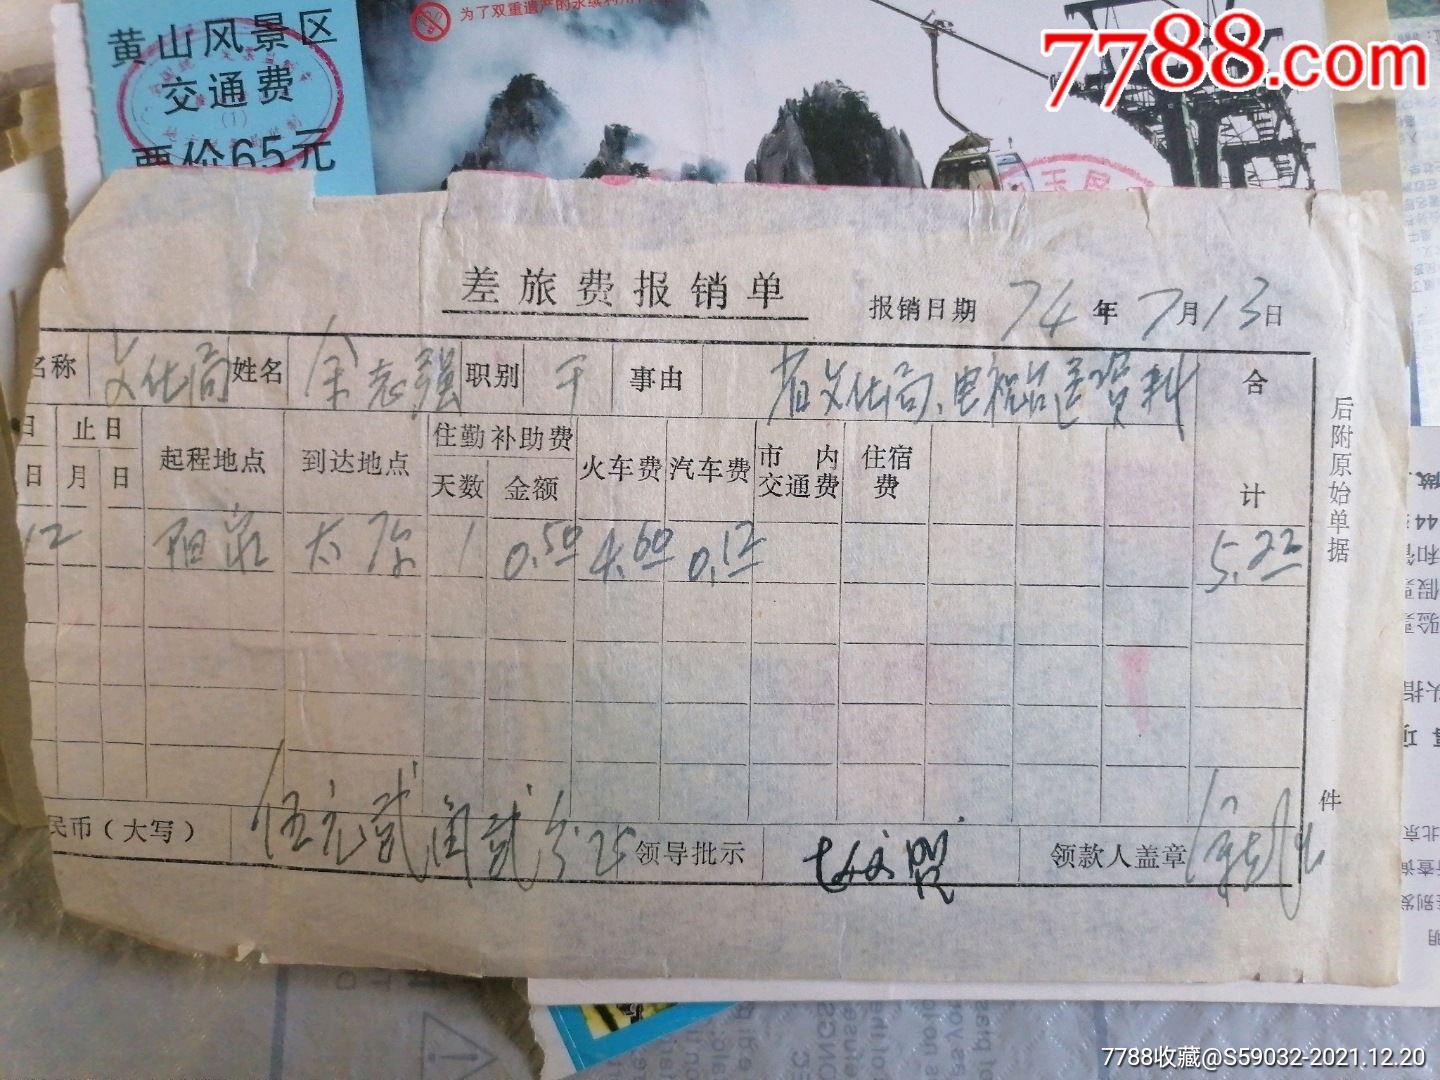 黄山风景区
交通费
票价65元
为了双重遗产的永续利用
7788.com
差旅费报销单
报销日期 74年7月13日
名称 文化局 姓名 余志强 职别 干 事由 省文化局、电视台送资料 合
日 止日 起程地点 到达地点 住勤补助费 火车费 汽车费 市内交通费 住宿费 计
日 月 日 天数 金额
12 阳泉 太原 1 0.50 4.60 0.12 5.22
后附原始单据
件
民币（大写） 伍元贰角贰分 领导批示 领款人盖章
7788收藏@S59032-2021.12.20